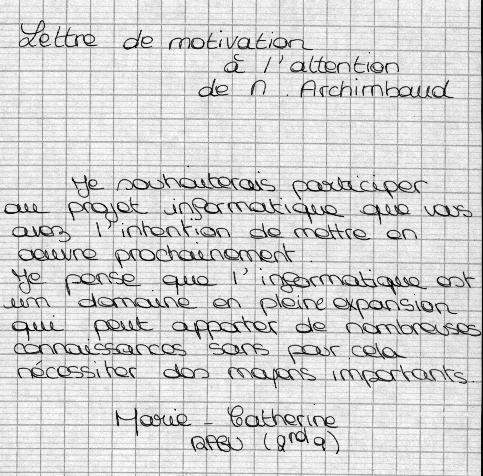 Lettre de motivation
à l'attention
de M. Archimbaud
Je souhaiterais participer
au projet informatique que vous
avez l'intention de mettre en
oeuvre prochainement.
Je pense que l'informatique est
un domaine en pleine expansion
qui peut apporter de nombreuses
connaissances sans pour cela
nécessiter des moyens importants.
Marie-Catherine
(2nd 9)